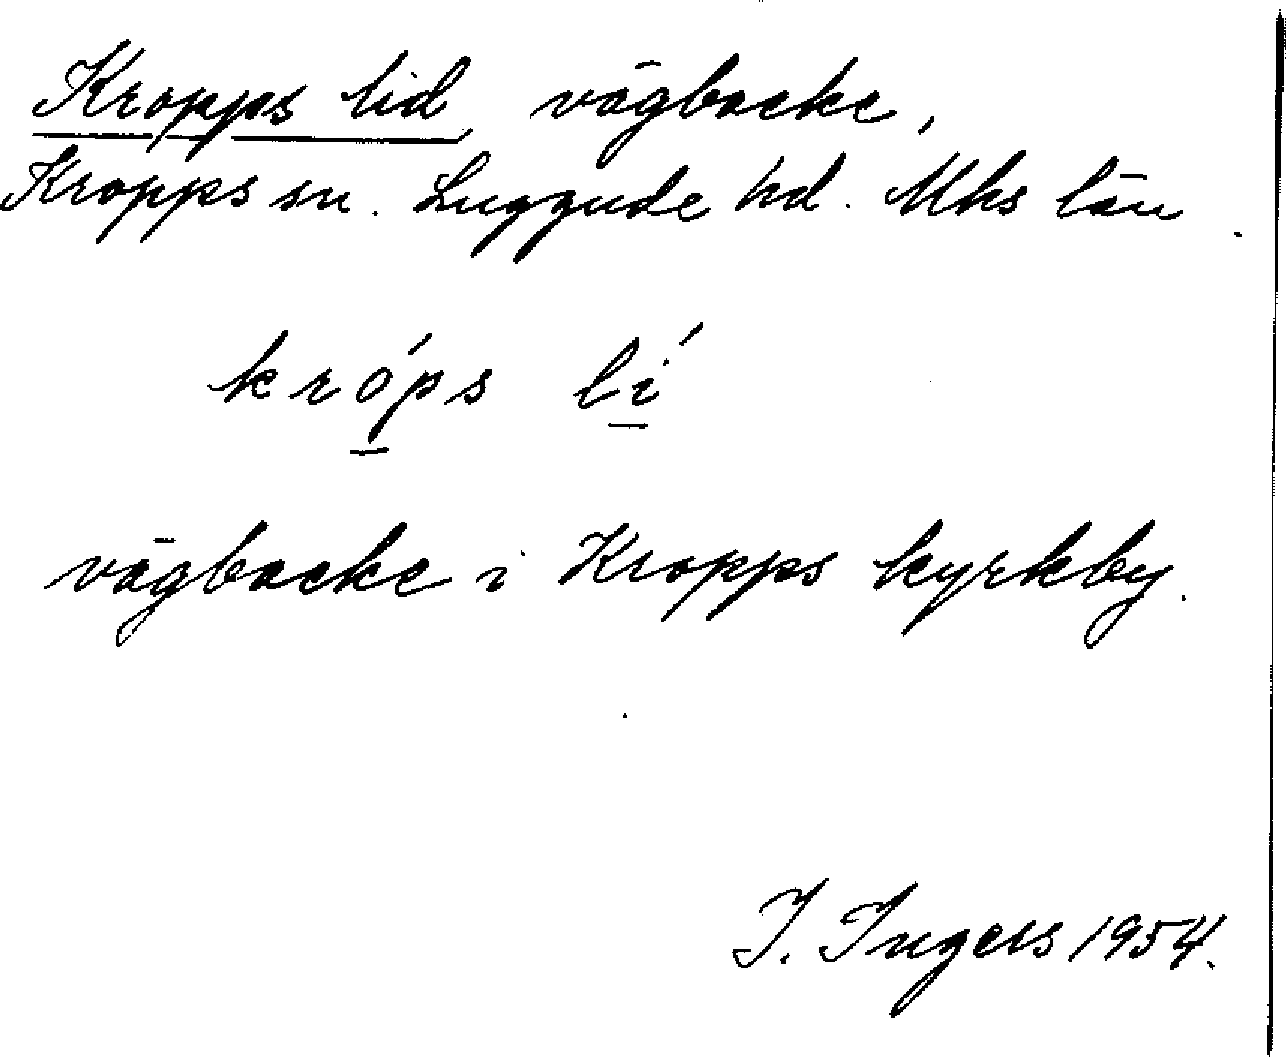 Kropps lid, vägbacke,
Kropps sn. Luggude hd. Mhs län.
kro̱ps li̱
vägbacke i Kropps kyrkby.
I. Ingers 1954.